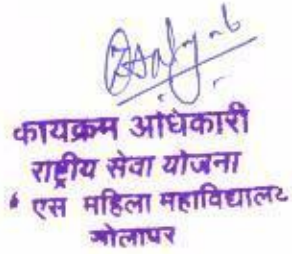 कायक्रम अधिकारी
राष्ट्रीय सेवा योजना
एस महिला महाविद्यालट